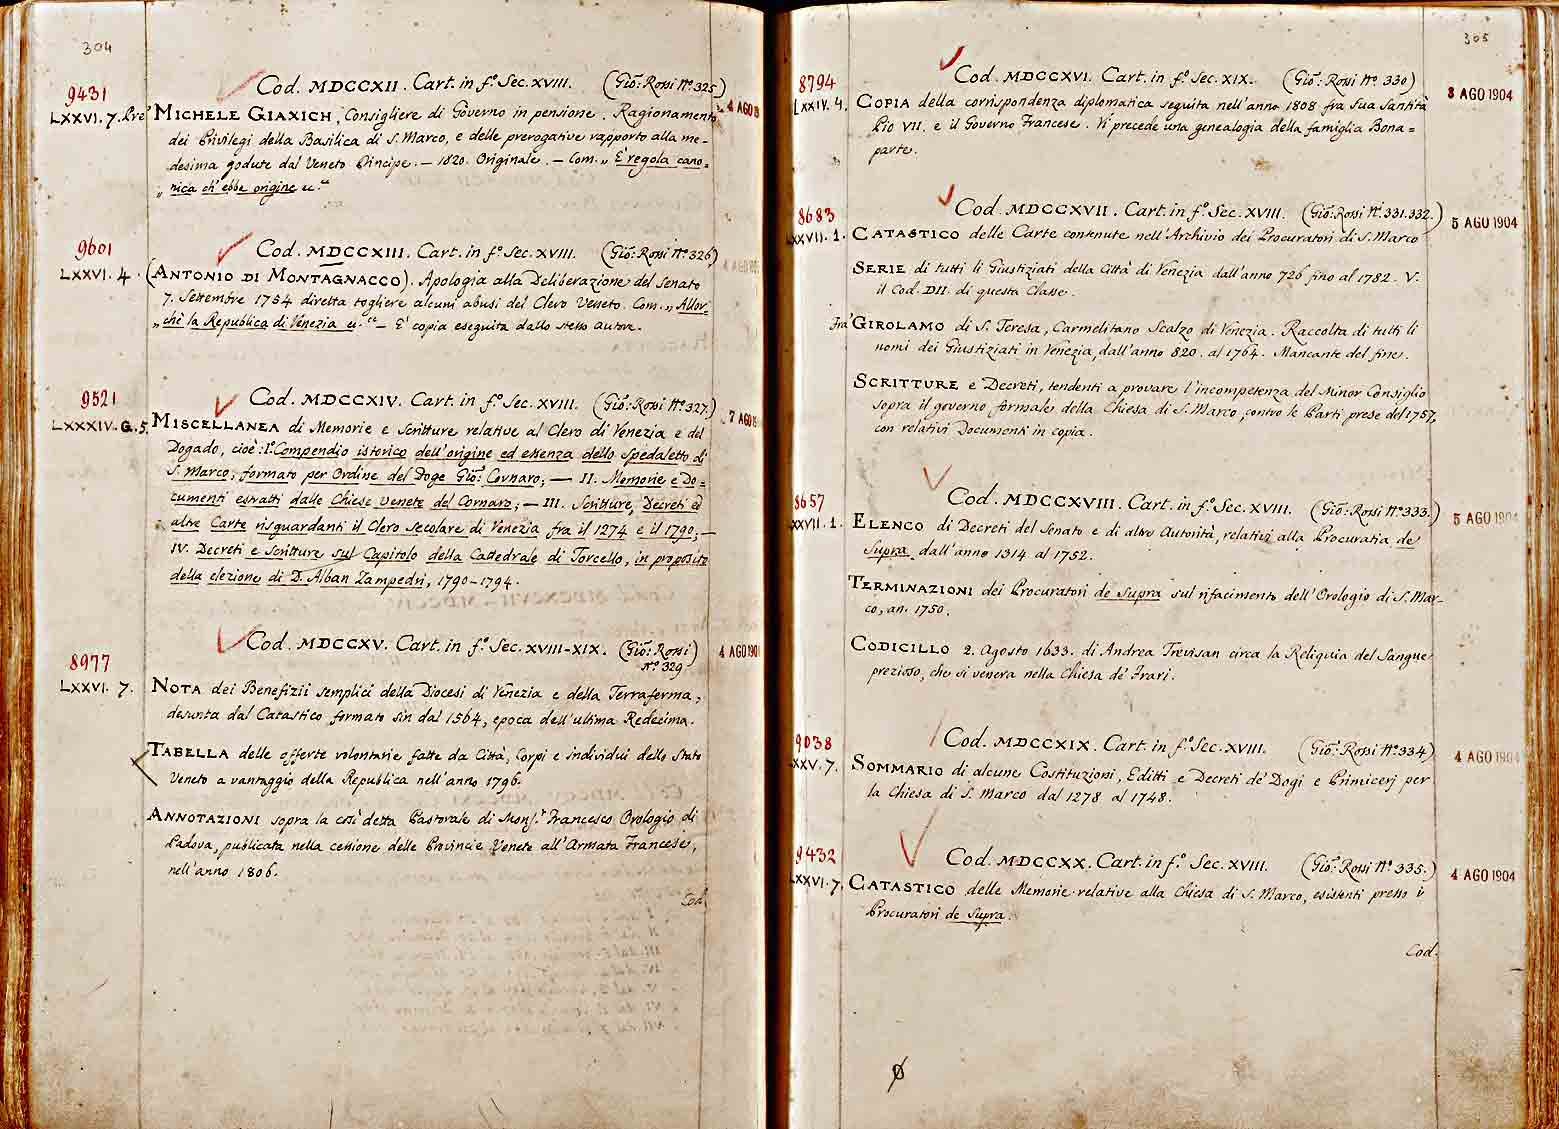 304
Cod. MDCCXII. Cart. in f.º Sec. XVIII. (Giō: Rossi Nº 325)
9431
LXXVI. 7. Pre' MICHELE GIAXICH, Consigliere di Governo in pensione. Ragionamento
4 AGO 19
dei Privilegi della Basilica di S. Marco, e delle prerogative rapporto alla me-
desima godute dal Veneto Principe. — 1820. Originale. — Com. „ E' regola cano-
„ nica ch' ebbe origine ec.“
9601
Cod. MDCCXIII. Cart. in f.º Sec. XVIII. (Giō: Rossi Nº 326)
LXXVI. 4. (ANTONIO DI MONTAGNACCO). Apologia alla Deliberazione del Senato
4 AGO
7. Settembre 1754 diretta togliere alcuni abusi del Clero Veneto. Com. „ Allor-
„ chè la Republica di Venezia ec.“ — E' copia eseguita dallo stesso autore.
9521
Cod. MDCCXIV. Cart. in f.º Sec. XVIII. (Giō: Rossi Nº 327.)
LXXXIV. G. 5. MISCELLANEA di Memorie e Scritture relative al Clero di Venezia e del
7 AGO 19
Dogado, cioè: I.º Compendio istorico dell'origine ed essenza dello Spedaletto di
S. Marco, formato per Ordine del Doge Giō: Cornaro; — II. Memorie e Do-
cumenti estratti dalle Chiese venete del Cornaro; — III. Scritture, Decreti ed
altre Carte risguardanti il Clero secolare di Venezia fra il 1274 e il 1790; —
IV. Decreti e Scritture sul Capitolo della Cattedrale di Torcello, in proposito
della elezione di D. Alban Zampedri, 1790-1794.
Cod. MDCCXV. Cart. in f.º Sec. XVIII-XIX. (Giō: Rossi
Nº 329)
4 AGO 190
8977
LXXVI. 7. NOTA dei Benefizii semplici della Diocesi di Venezia e della Terraferma,
desunta dal Catastico formato sin dal 1564, epoca dell'ultima Redecima.
TABELLA delle offerte volontarie fatte da Città, Corpi e individui dello Stato
Veneto a vantaggio della Republica nell'anno 1796.
ANNOTAZIONI sopra la così detta Pastorale di Mons.r Francesco Orologio di
Padova, publicata nella cessione delle Provincie Venete all'Armata Francese,
nell'anno 1806.
Cod.
305
8794
Cod. MDCCXVI. Cart. in f.º Sec. XIX. (Giō: Rossi Nº 330)
8 AGO 1904
LXXIV. 4. COPIA della corrispondenza diplomatica seguita nell'anno 1808 fra Sua Santità
Pio VII. e il Governo Francese. Vi precede una genealogia della famiglia Bona=
parte.
8683
Cod. MDCCXVII. Cart. in f.º Sec. XVIII. (Giō: Rossi Nº 331.332.)
5 AGO 1904
LXXVII. 1. CATASTICO delle Carte contenute nell'Archivio dei Procuratori di S. Marco
SERIE di tutti li Giustiziati della Città di Venezia dall'anno 726 fino al 1782. V.
il Cod. DII. di questa Classe.
Fra' GIROLAMO di S. Teresa, Carmelitano Scalzo di Venezia. Raccolta di tutti li
nomi dei Giustiziati in Venezia, dall'anno 820. al 1764. Mancante del fine.
SCRITTURE e Decreti, tendenti a provare l'incompetenza del Minor Consiglio
sopra il governo formale della Chiesa di S. Marco, contro le Parti prese del 1757,
con relativi Documenti in copia.
8657
Cod. MDCCXVIII. Cart. in f.º Sec. XVIII. (Giō: Rossi Nº 333.)
5 AGO 1904
LXXVII. 1. ELENCO di Decreti del Senato e di altre Autorità, relativi alla Procuratia de
Supra dall'anno 1314 al 1752.
TERMINAZIONI dei Procuratori de Supra sul rifacimento dell'Orologio di S. Mar-
co, an. 1750.
CODICILLO 2. Agosto 1633. di Andrea Trevisan circa la Reliquia del Sangue
prezioso, che si venera nella Chiesa de' Frari.
9038
Cod. MDCCXIX. Cart. in f.º Sec. XVIII. (Giō: Rossi Nº 334)
4 AGO 1904
LXXV. 7. SOMMARIO di alcune Costituzioni, Editti e Decreti de' Dogi e Primicerj per
la Chiesa di S. Marco dal 1278 al 1748.
9432
Cod. MDCCXX. Cart. in f.º Sec. XVIII. (Giō: Rossi Nº 335.)
4 AGO 1904
LXXVI. 7. CATASTICO delle Memorie relative alla Chiesa di S. Marco, esistenti presso i
Procuratori de Supra.
Cod.